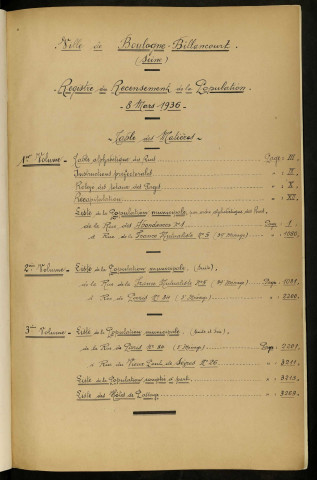 Ville de Boulogne-Billancourt
(Seine)
Registre du Recensement de la Population
8 Mars 1936
Table des Matières
1er Volume - Table alphabétique des Rues Page III
Instructions préfectorales " 
Relevé des totaux des Pages " X
Récapitulation " XI
Liste de la Population municipale par ordre alphabétique des Rues
de la Rue des Abondances N° 1 Page 1
à Rue de la France Mutualiste N° 5 " 1090
2ème Volume - Liste de la Population municipale (suite)
de la Rue de la France Mutualiste N° 5 Page 1091
à Rue de Paris N° 80 " 2200
3ème Volume - Liste de la Population municipale (suite et fin)
de la Rue de Paris N° 80 Page 2201
à Rue du Vieux Pont de Sèvres N° 126 " 3211
Liste de la Population comptée à part " 3213
Liste des Hôtes de Passage "